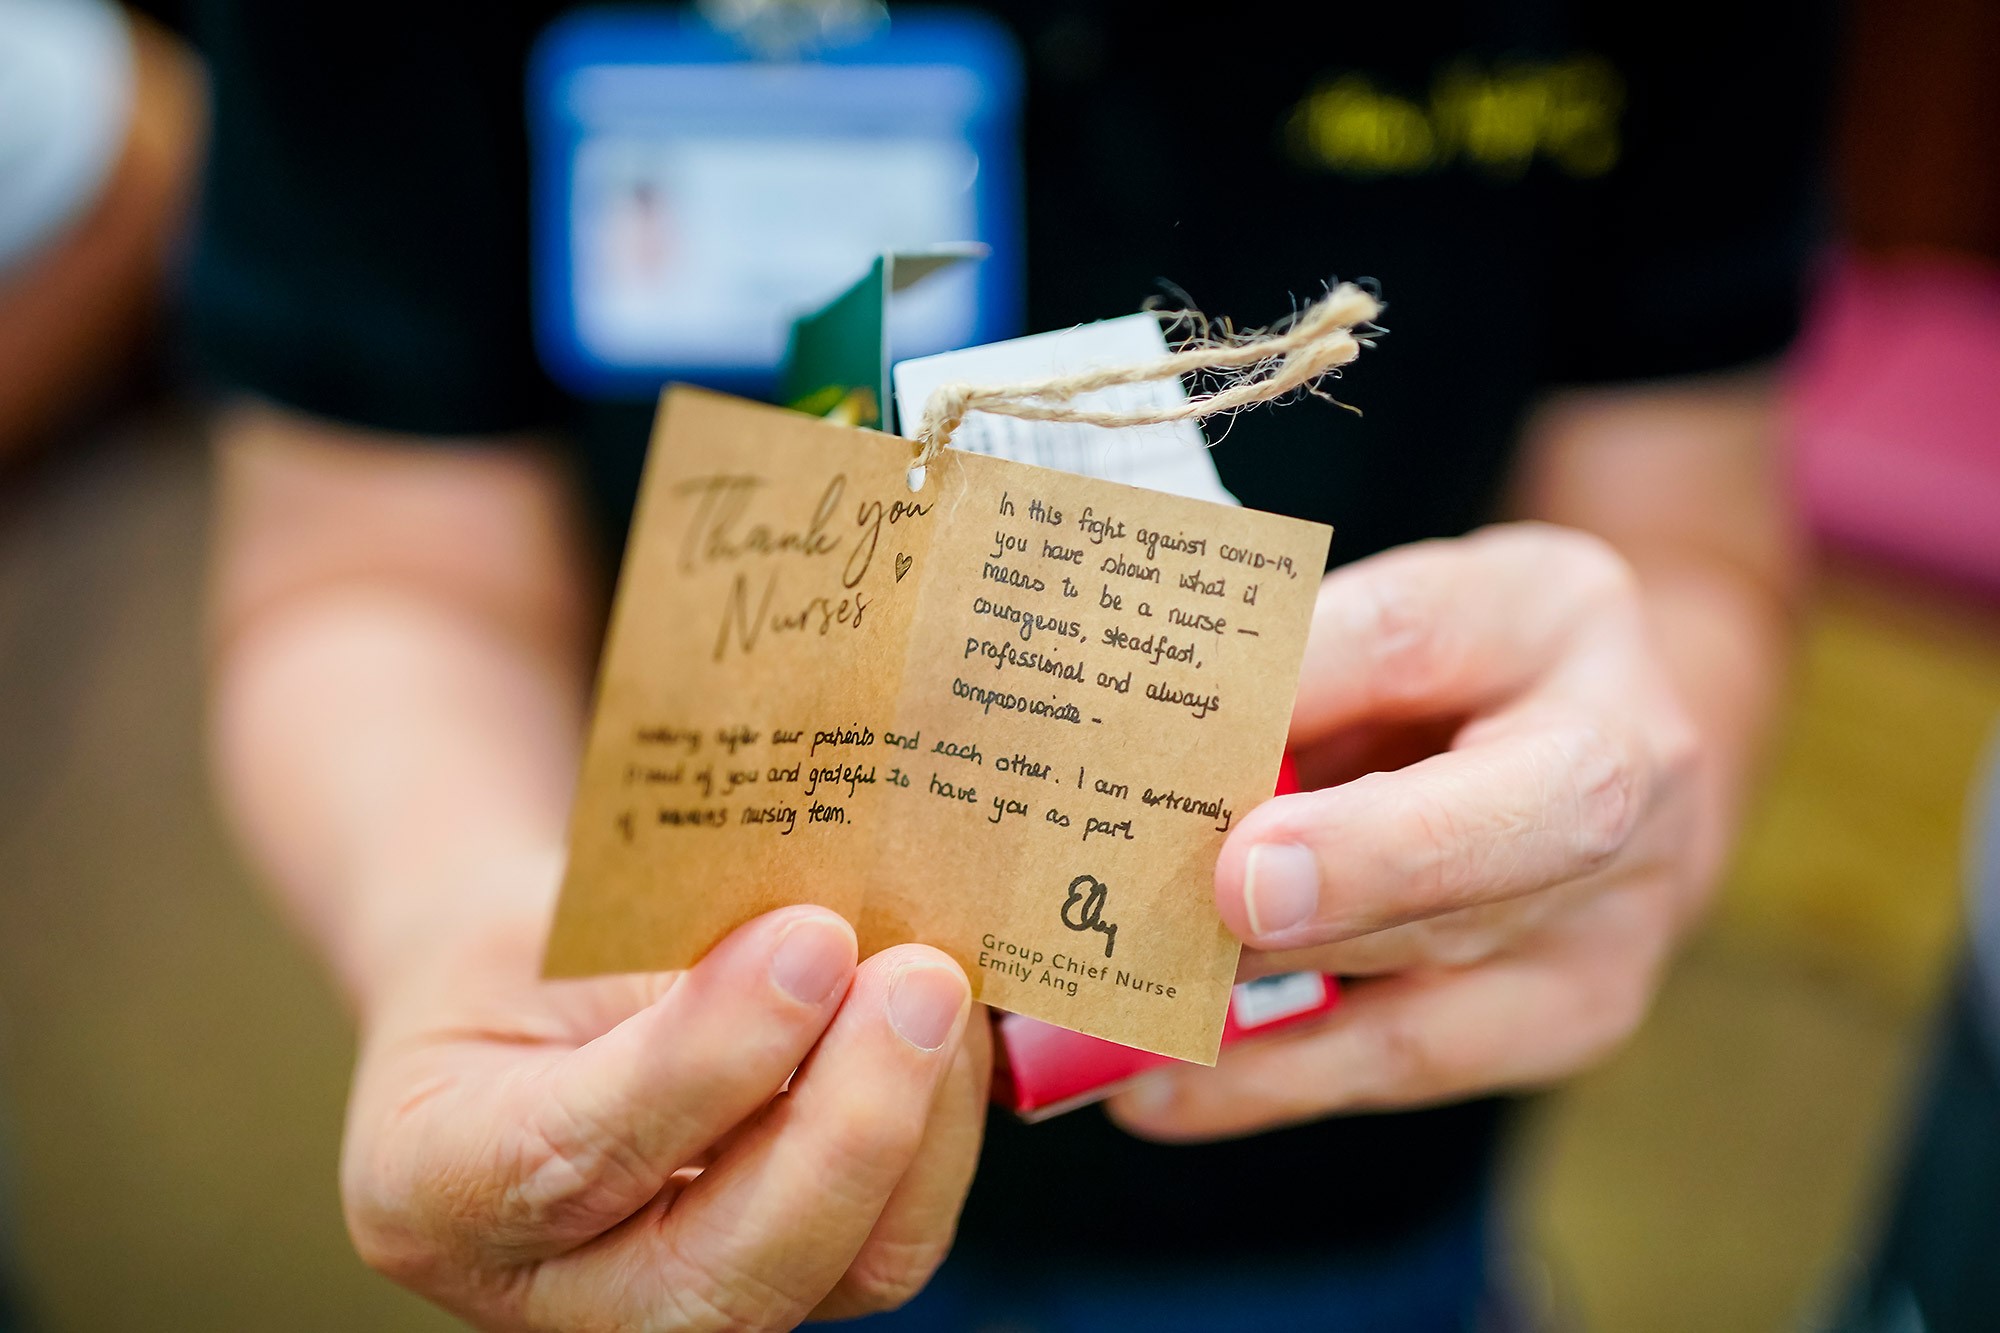 Thank you
Nurses
In this fight against COVID-19,
you have shown what it
means to be a nurse —
courageous, steadfast,
professional and always
compassionate -
after our patients and each other. I am extremely
proud of you and grateful to have you as part
of nursing team.
Group Chief Nurse
Emily Ang